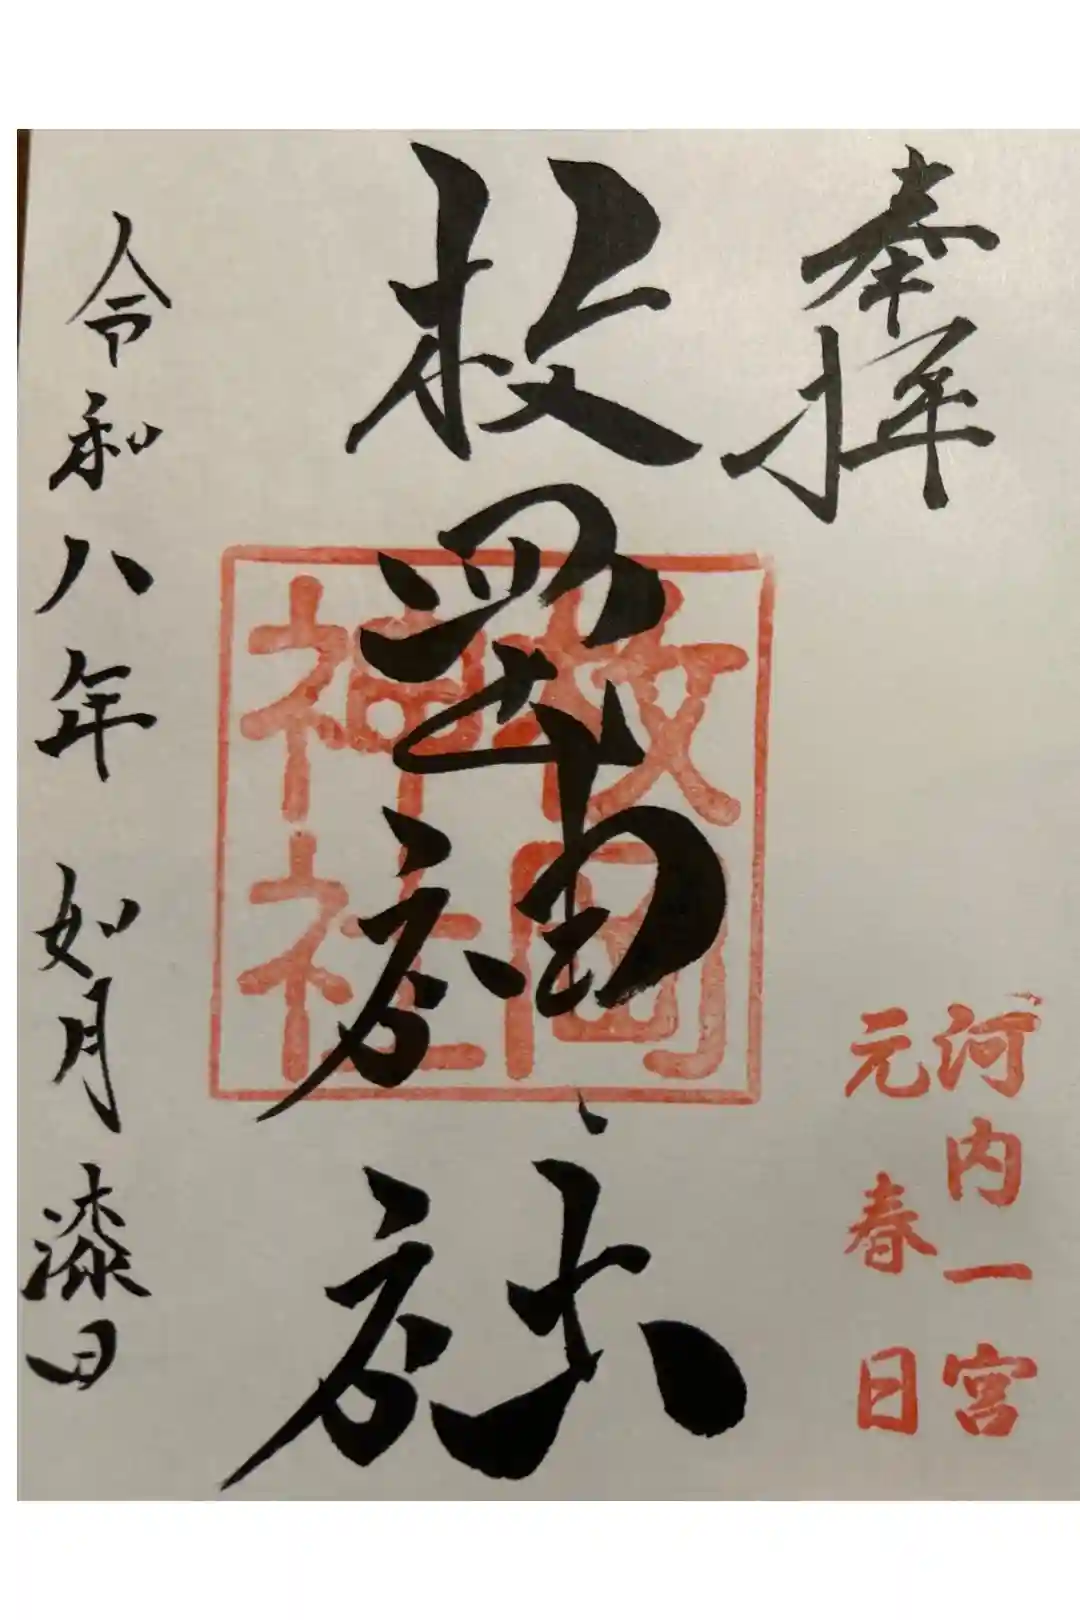 奉拝
河内一宮
元春日
枚岡神社
枚岡
神社
令和八年 如月 漆日